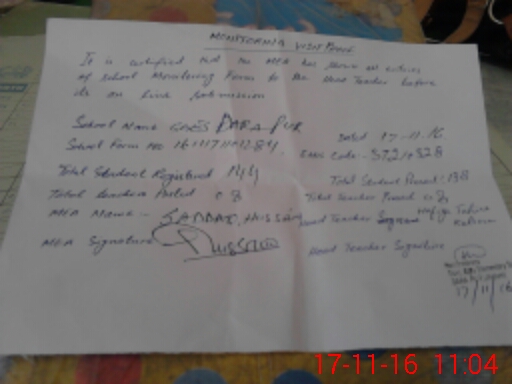 MONITORING VISIT PROOF
It is certified that the MEA has shown all entries
of school Monitoring Form to the Head Teacher before
its on line submission
School Name GGES DARA PUR Dated 17-11-16
School Form No EMIS Code:- 37210328
Total Student Registered 144 Total Student Present: 138
Total teachers Posted 08 Total Teacher Present 08
MEA Name:- SAFDAR HUSSAIN Head Teacher Hafiza Tahira
MEA Signature Hussain Head Teacher Signature
17/11/16
17-11-16 11:04